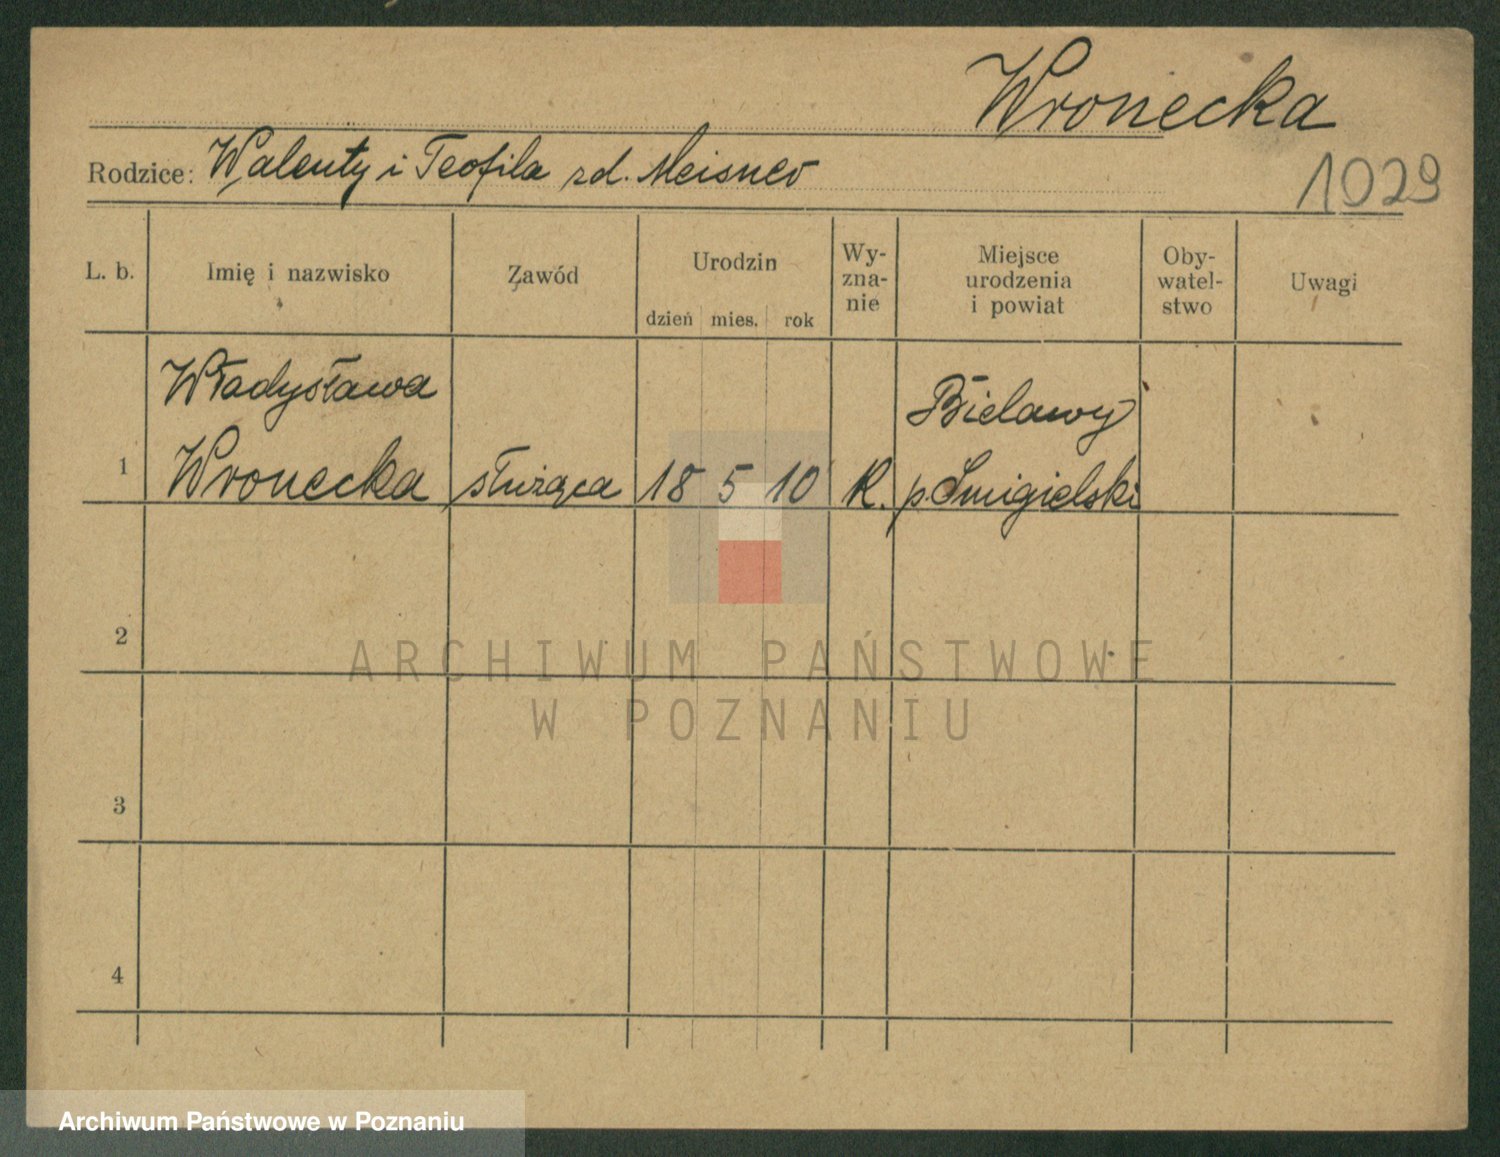 Wronecka
Rodzice: Walenty i Teofila zd. Meisner
1029
L. b.
Imię i nazwisko
Zawód
Urodzin
dzień mies. rok
Wy-
zna-
nie
Miejsce
urodzenia
i powiat
Oby-
watel-
stwo
Uwagi
Władysława
Bielawy
1 Wronecka służąca 18 5 10 K. p. Śmigielski
2
ARCHIWUM PAŃSTWOWE
W POZNANIU
3
4
Archiwum Państwowe w Poznaniu